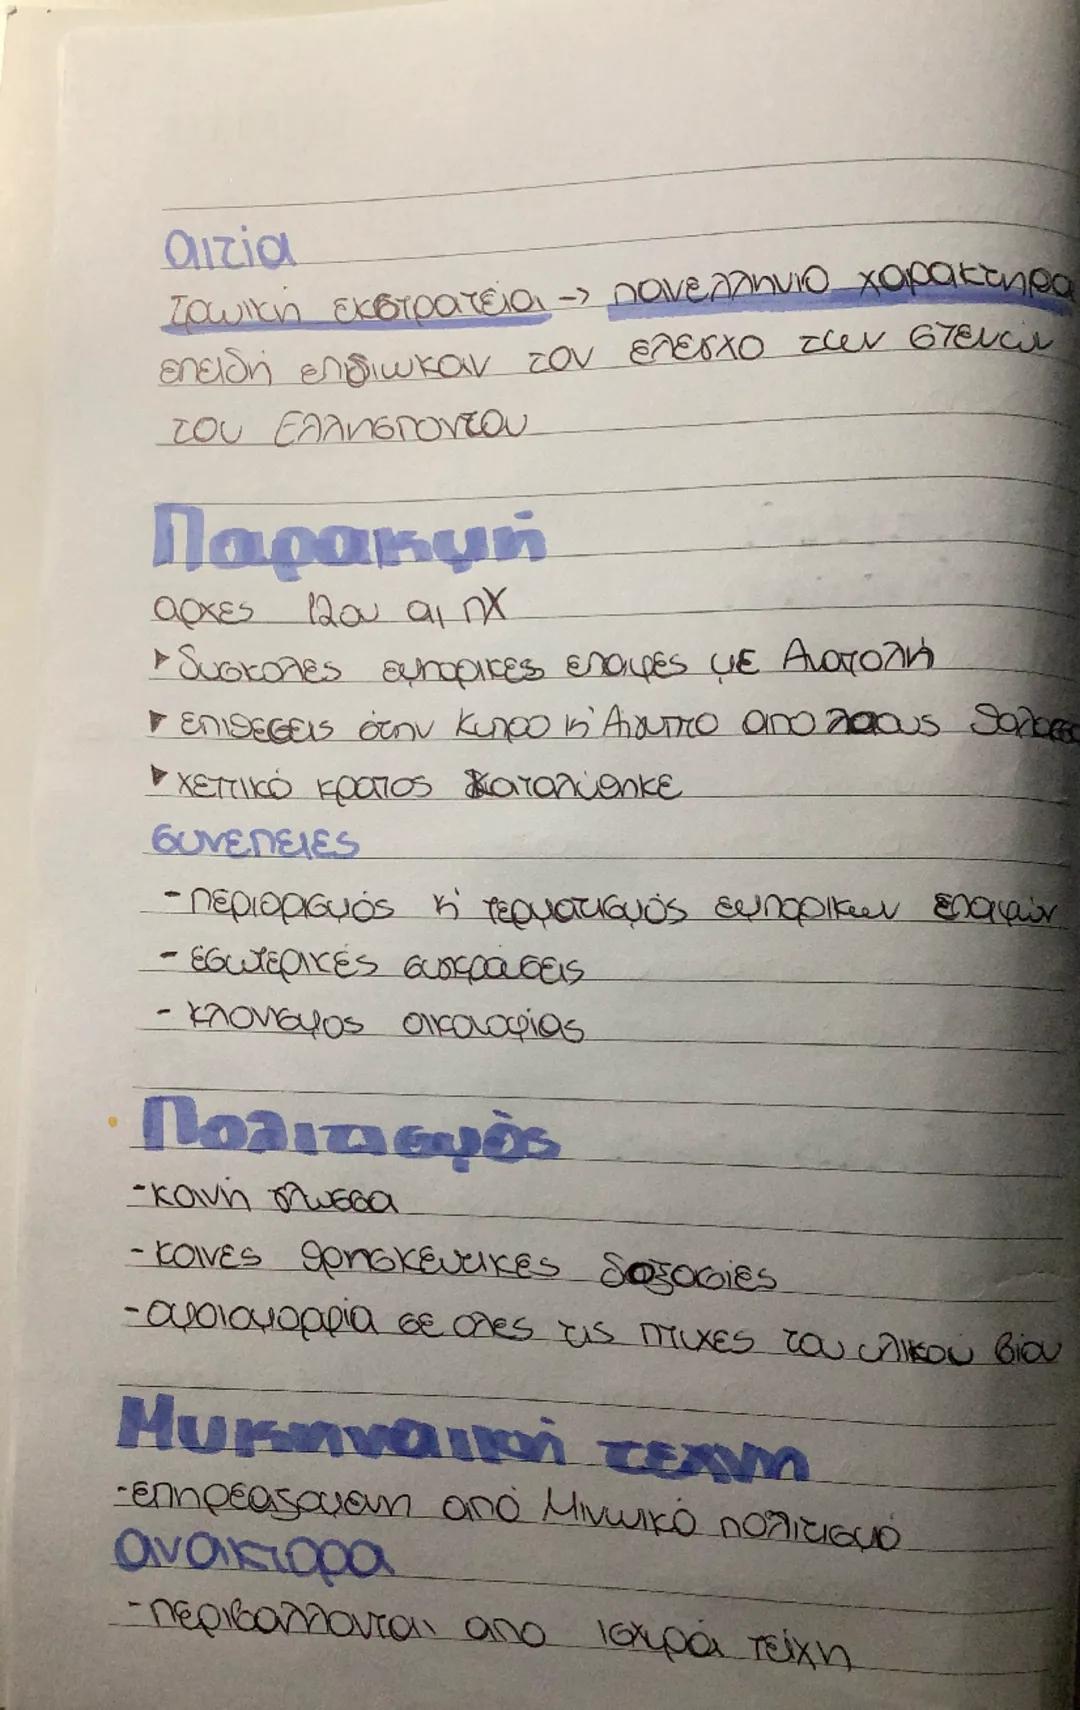 αιτία
Τρωική εκστρατεία -> πανελλήνιο χαρακτηρα
επειδή επιδιωκαν τον ελεγχο των στενών
του Ελλησποντου
Παρακμή
αρχες 12ου αι πΧ
▸ δυσκολες εμπορικες επαφες με Ανατολή
▸ επιθεσεις στην Κυπρο κ' Αιγυπτο απο λαους θαλασσ
▸ χεττικό κρατος καταλύθηκε
συνεπειες
- περιορισμός κ' τερματισμός εμπορικων επαφών
- εσωτερικές συγκρούσεις
- κλονισμος οικονομίας
Πολιτισμός
- κοινή γλωσσα
- κοινες θρησκευτικες δοξασίες
- ομοιομορφία σε ολες τις πτυχες του υλικού βίου
Μυκηναική τεχνη
- επηρεασμενη από Μινωικό πολιτισμό
ανακτορα
- περιβαλλονται απο ισχυρά τείχη